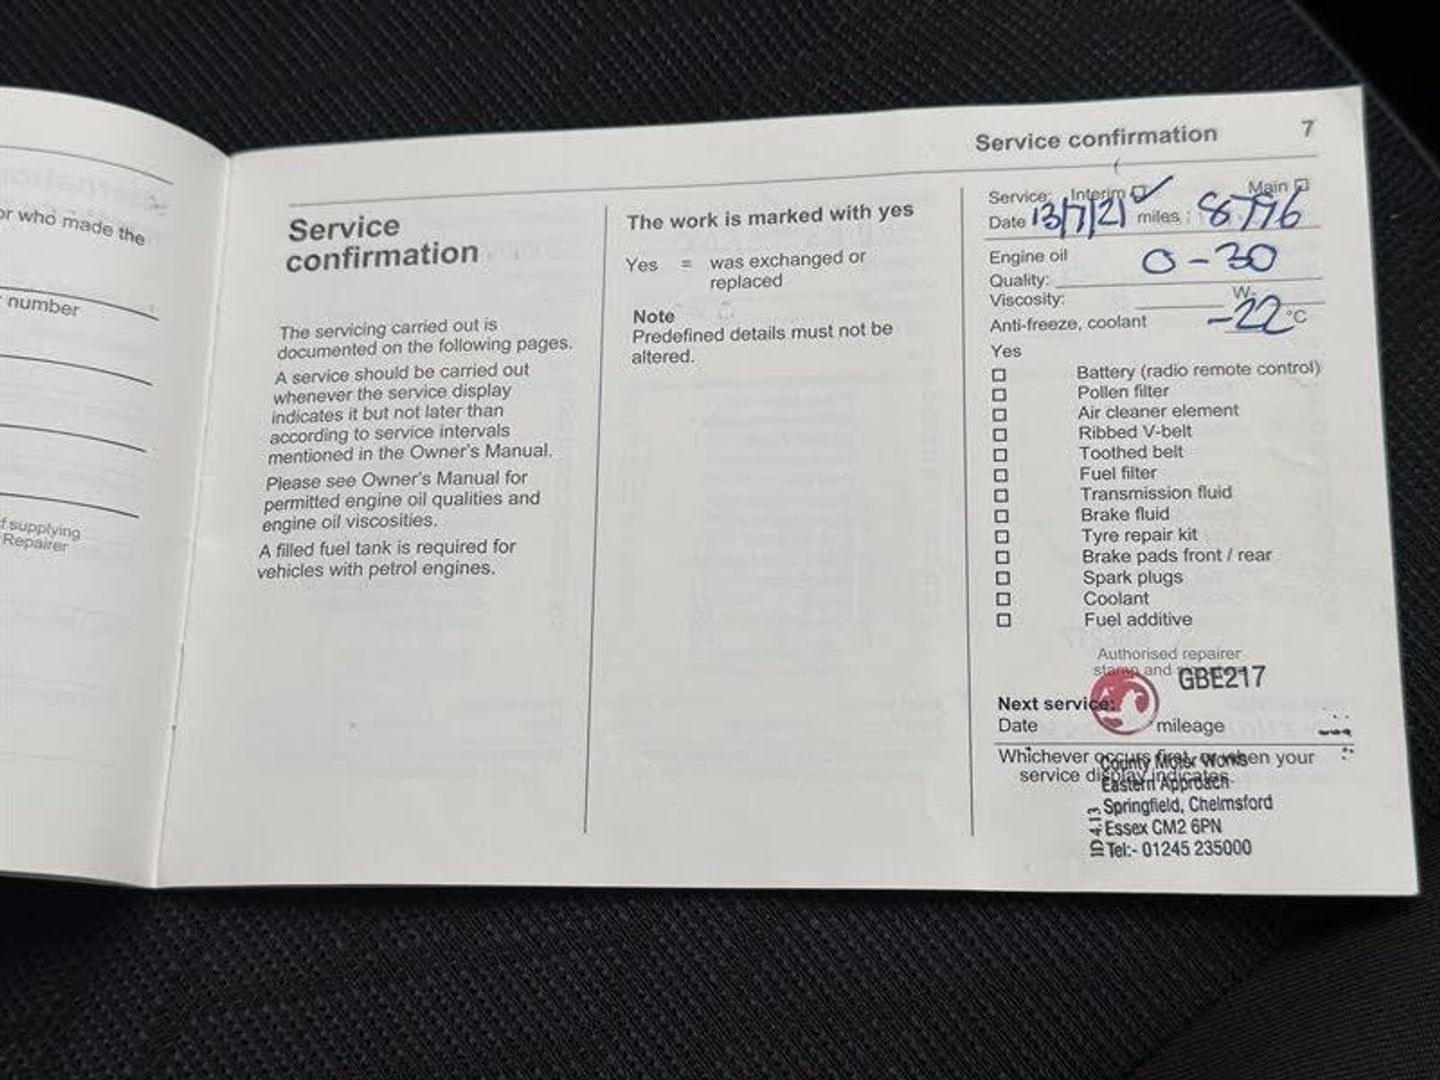 or who made the
number
f supplying
Repairer
Service confirmation 7
Service
confirmation
The servicing carried out is
documented on the following pages.
A service should be carried out
whenever the service display
indicates it but not later than
according to service intervals
mentioned in the Owner's Manual.
Please see Owner's Manual for
permitted engine oil qualities and
engine oil viscosities.
A filled fuel tank is required for
vehicles with petrol engines.
The work is marked with yes
Yes = was exchanged or
replaced
Note
Predefined details must not be
altered.
Service: Interim ☐ ✓ Main ☐
Date 13/7/21 miles : 8776
Engine oil 0-30
Quality:
Viscosity: W-
Anti-freeze, coolant -22 °C
Yes
☐ Battery (radio remote control)
☐ Pollen filter
☐ Air cleaner element
☐ Ribbed V-belt
☐ Toothed belt
☐ Fuel filter
☐ Transmission fluid
☐ Brake fluid
☐ Tyre repair kit
☐ Brake pads front / rear
☐ Spark plugs
☐ Coolant
☐ Fuel additive
Authorised repairer
stamp and signature
GBE217
Next service:
Date mileage
Whichever occurs first, or when your
service display indicates.
County Motor Works
Eastern Approach
Springfield, Chelmsford
Essex CM2 6PN
Tel:- 01245 235000
ID 4.13